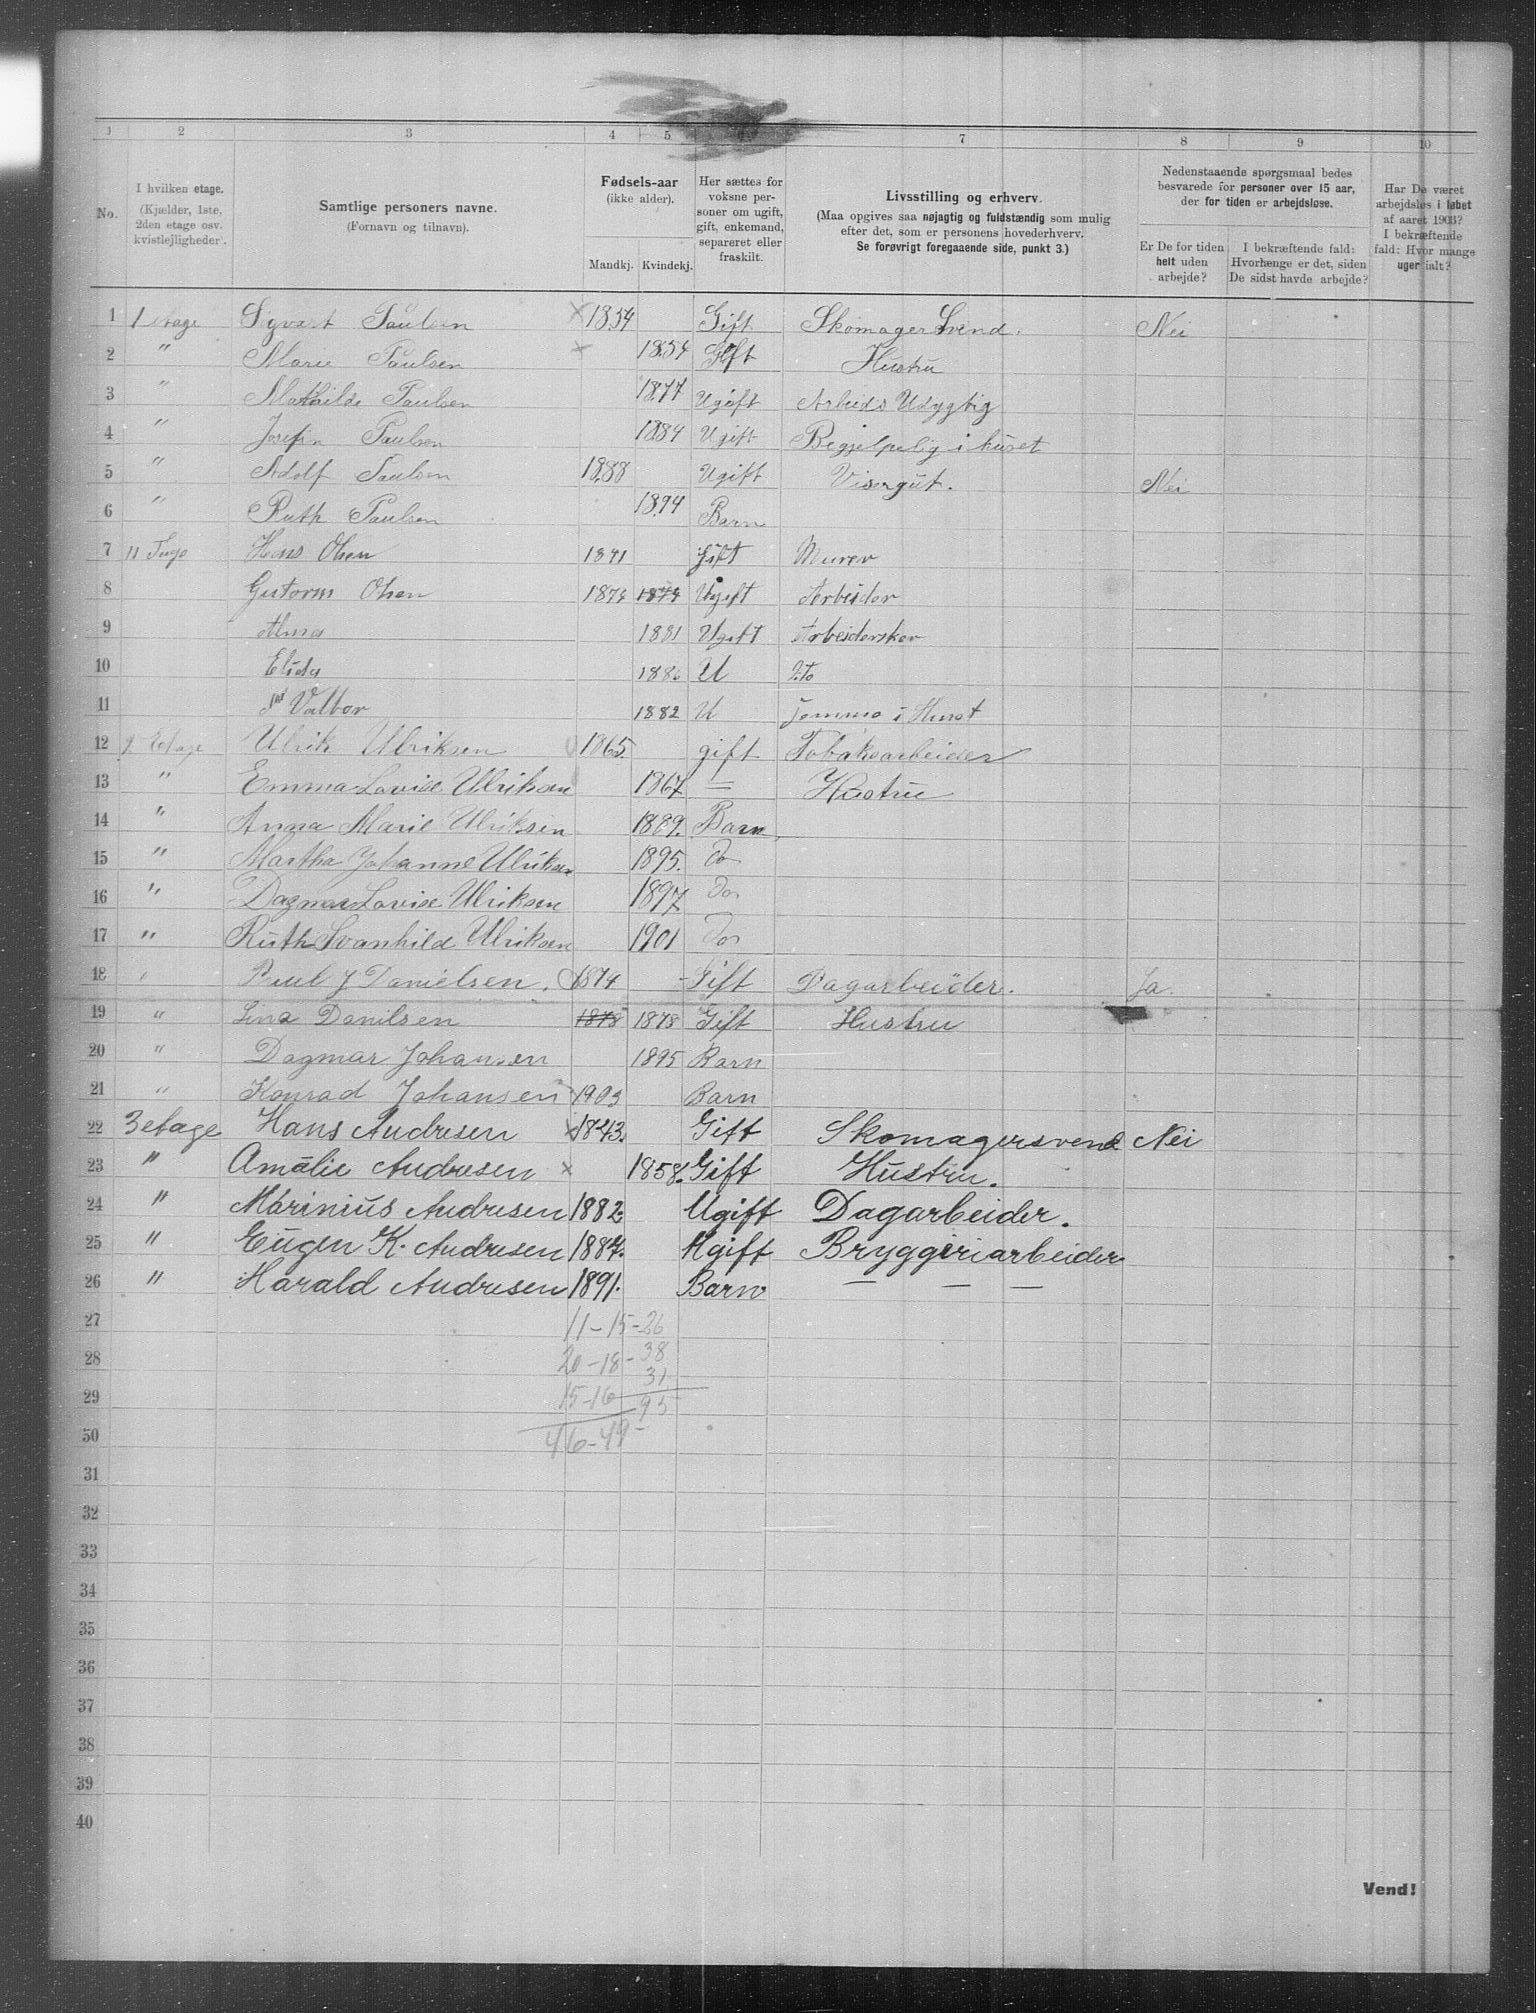 1 2 3 4 5 7 8 9 10
No. | I hvilken etage. (Kjælder, 1ste, 2den etage osv. kvistlejligheder). | Samtlige personers navne. (Fornavn og tilnavn). | Fødsels-aar (ikke alder). Mandkj. Kvindekj. | Her sættes for voksne personer om ugift, gift, enkemand, separeret eller fraskilt. | Livsstilling og erhverv. (Maa opgives saa nøjagtig og fuldstændig som mulig efter det, som er personens hovederhverv. Se forøvrigt foregaaende side, punkt 3.) | Nedenstaaende spørgsmaal bedes besvarede for personer over 15 aar, der for tiden er arbejdsløse. Er De for tiden helt uden arbejde? | I bekræftende fald: Hvorlænge er det, siden De sidst havde arbejde? | Har De været arbejdsløs i løbet af aaret 1903? I bekræftende fald: Hvor mange uger ialt?
1 1 etage Sigvart Paulsen × 1854 Gift Skomager Svend. Nei
2 " Marie Paulsen × 1854 Gift Hustru
3 " Mathilde Paulsen 1877 Ugift Arbeids Udygtig
4 " Josefin Paulsen 1884 Ugift Begjelpelig i huset
5 " Adolf Paulsen 1888 Ugift Visergut. Nei
6 " Ruth Paulsen 1894 Barn
7 11 Hans Olsen 1841 Gift Murer
8 Gutorm Olsen 1874 1874 Ugift Arbeider
9 Alma 1881 Ugift Arbeiderske
10 Elida 1886 U Dto
11 Valbor 1882 U i Huset
12 2 Etage Ulrik Ulriksen 1865. gift Tobaksarbeider
13 " Emma Lovise Ulriksen 1867 — Hustru
14 " Anna Marie Ulriksen 1889. Barn
15 " Martha Johanne Ulriksen 1895. Do
16 " Dagmar Lovise Ulriksen 1897 Do
17 " Ruth Svanhild Ulriksen 1901 Do
18 " Paul J Danielsen. 1874 Gift Dagarbeider. Ja.
19 " Lina Danilsen 1878 1878 Gift Hustru
20 " Dagmar Johansen 1895 Barn
21 " Konrad Johansen 1903 Barn
22 3 etage Hans Andresen × 1843. Gift Skomagersvend Nei
23 " Amalie Andresen × 1858. Gift Hustru.
24 " Marinius Andresen 1882. Ugift Dagarbeider.
25 " Eugen K. Andresen 1887. Ugift Bryggeriarbeider
26 " Harald Andresen 1891. Barn — — —
27 11-15-26
28 20-18-38
31
29 15-16
95
30 46-49-
31
32
33
34
35
36
37
38
39
40
Vend!